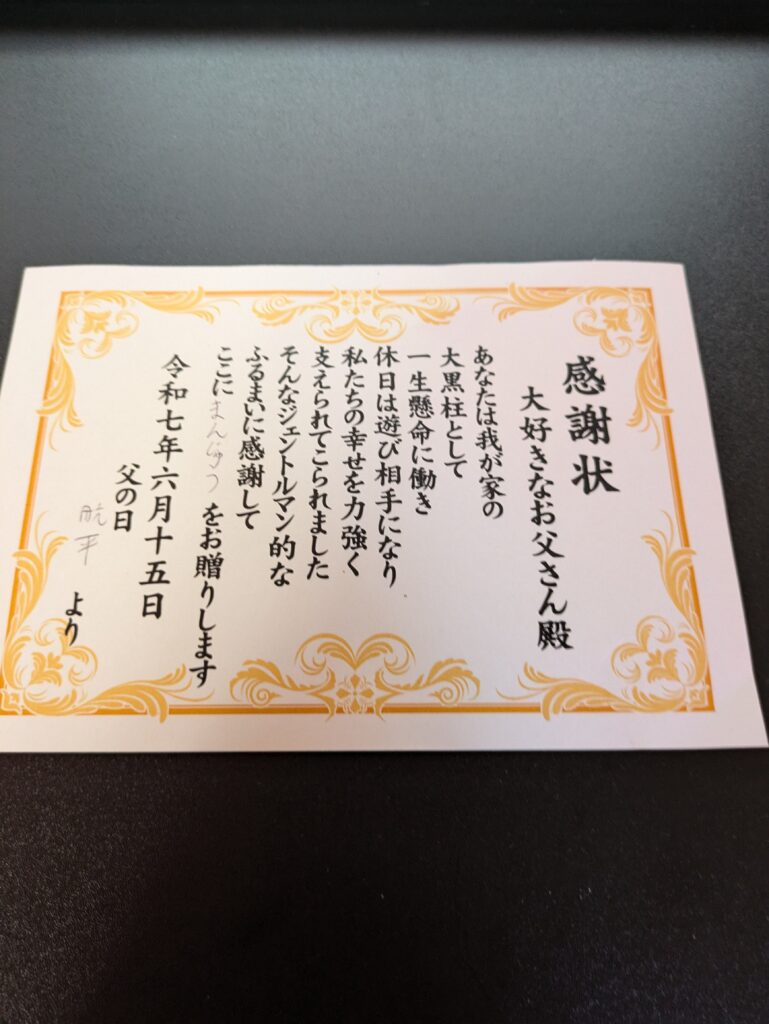 感謝状
大好きなお父さん殿
あなたは我が家の
大黒柱として
一生懸命に働き
休日は遊び相手になり
私たちの幸せを力強く
支えられてこられました
そんなジェントルマン的な
ふるまいに感謝して
ここにまんじゅうをお贈りします
令和七年六月十五日
父の日
航平 より